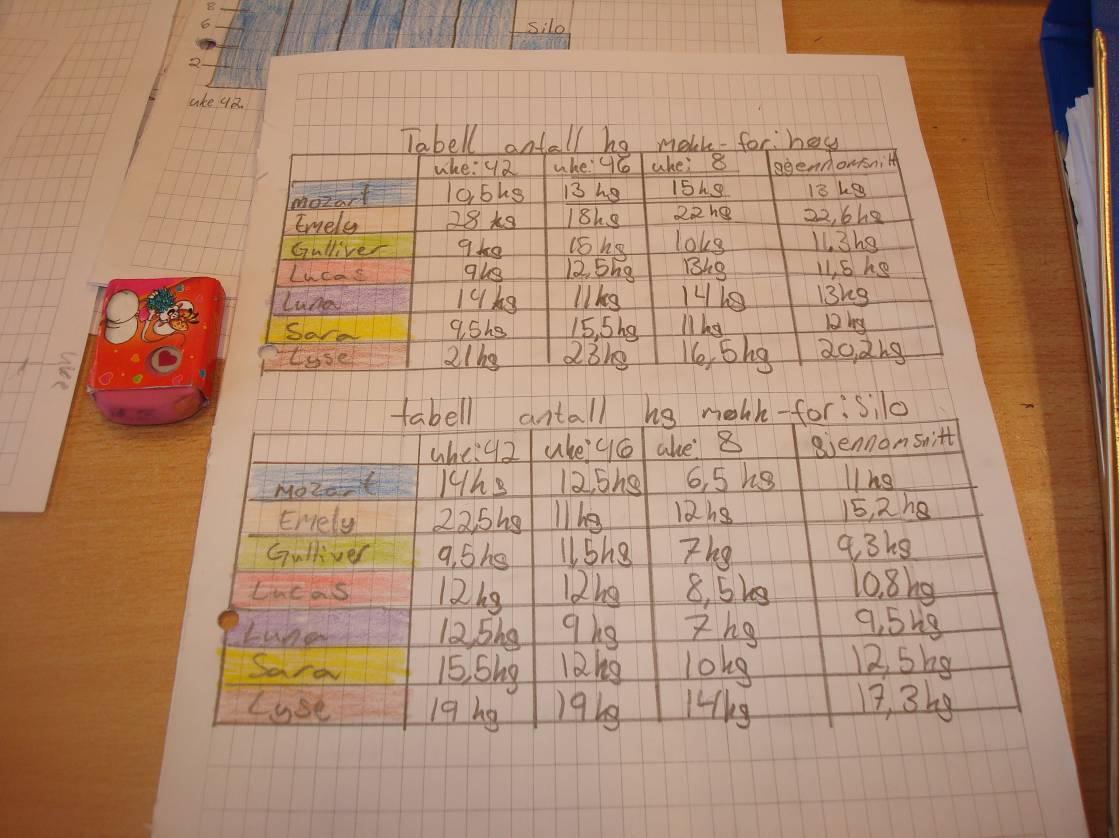 8
6
silo
2
uke 42
Tabell antall kg møkk-for: høy
uke: 42 uke: 46 uke: 8 gjennomsnitt
Mozart 10,5kg 13 kg 15kg 13 kg
Emely 28 kg 18kg 22 kg 22,6kg
Gulliver 9kg 15 kg 10kg 11,3kg
Lucas 9kg 12,5kg 13kg 11,5 kg
Luna 14kg 11kg 14 kg 13kg
Sara 9,5kg 15,5kg 11kg 12kg
Lyse 21kg 23kg 16,5kg 20,2kg
tabell antall kg møkk-for: silo
uke: 42 uke: 46 uke: 8 gjennomsnitt
Mozart 14kg 12,5kg 6,5 kg 11kg
Emely 22,5kg 11kg 12kg 15,2kg
Gulliver 9,5kg 11,5kg 7kg 9,3kg
Lucas 12kg 12kg 8,5kg 10,8kg
Luna 12,5kg 9kg 7kg 9,5kg
Sara 15,5kg 12kg 10kg 12,5kg
Lyse 19 kg 19kg 14kg 17,3kg
uke